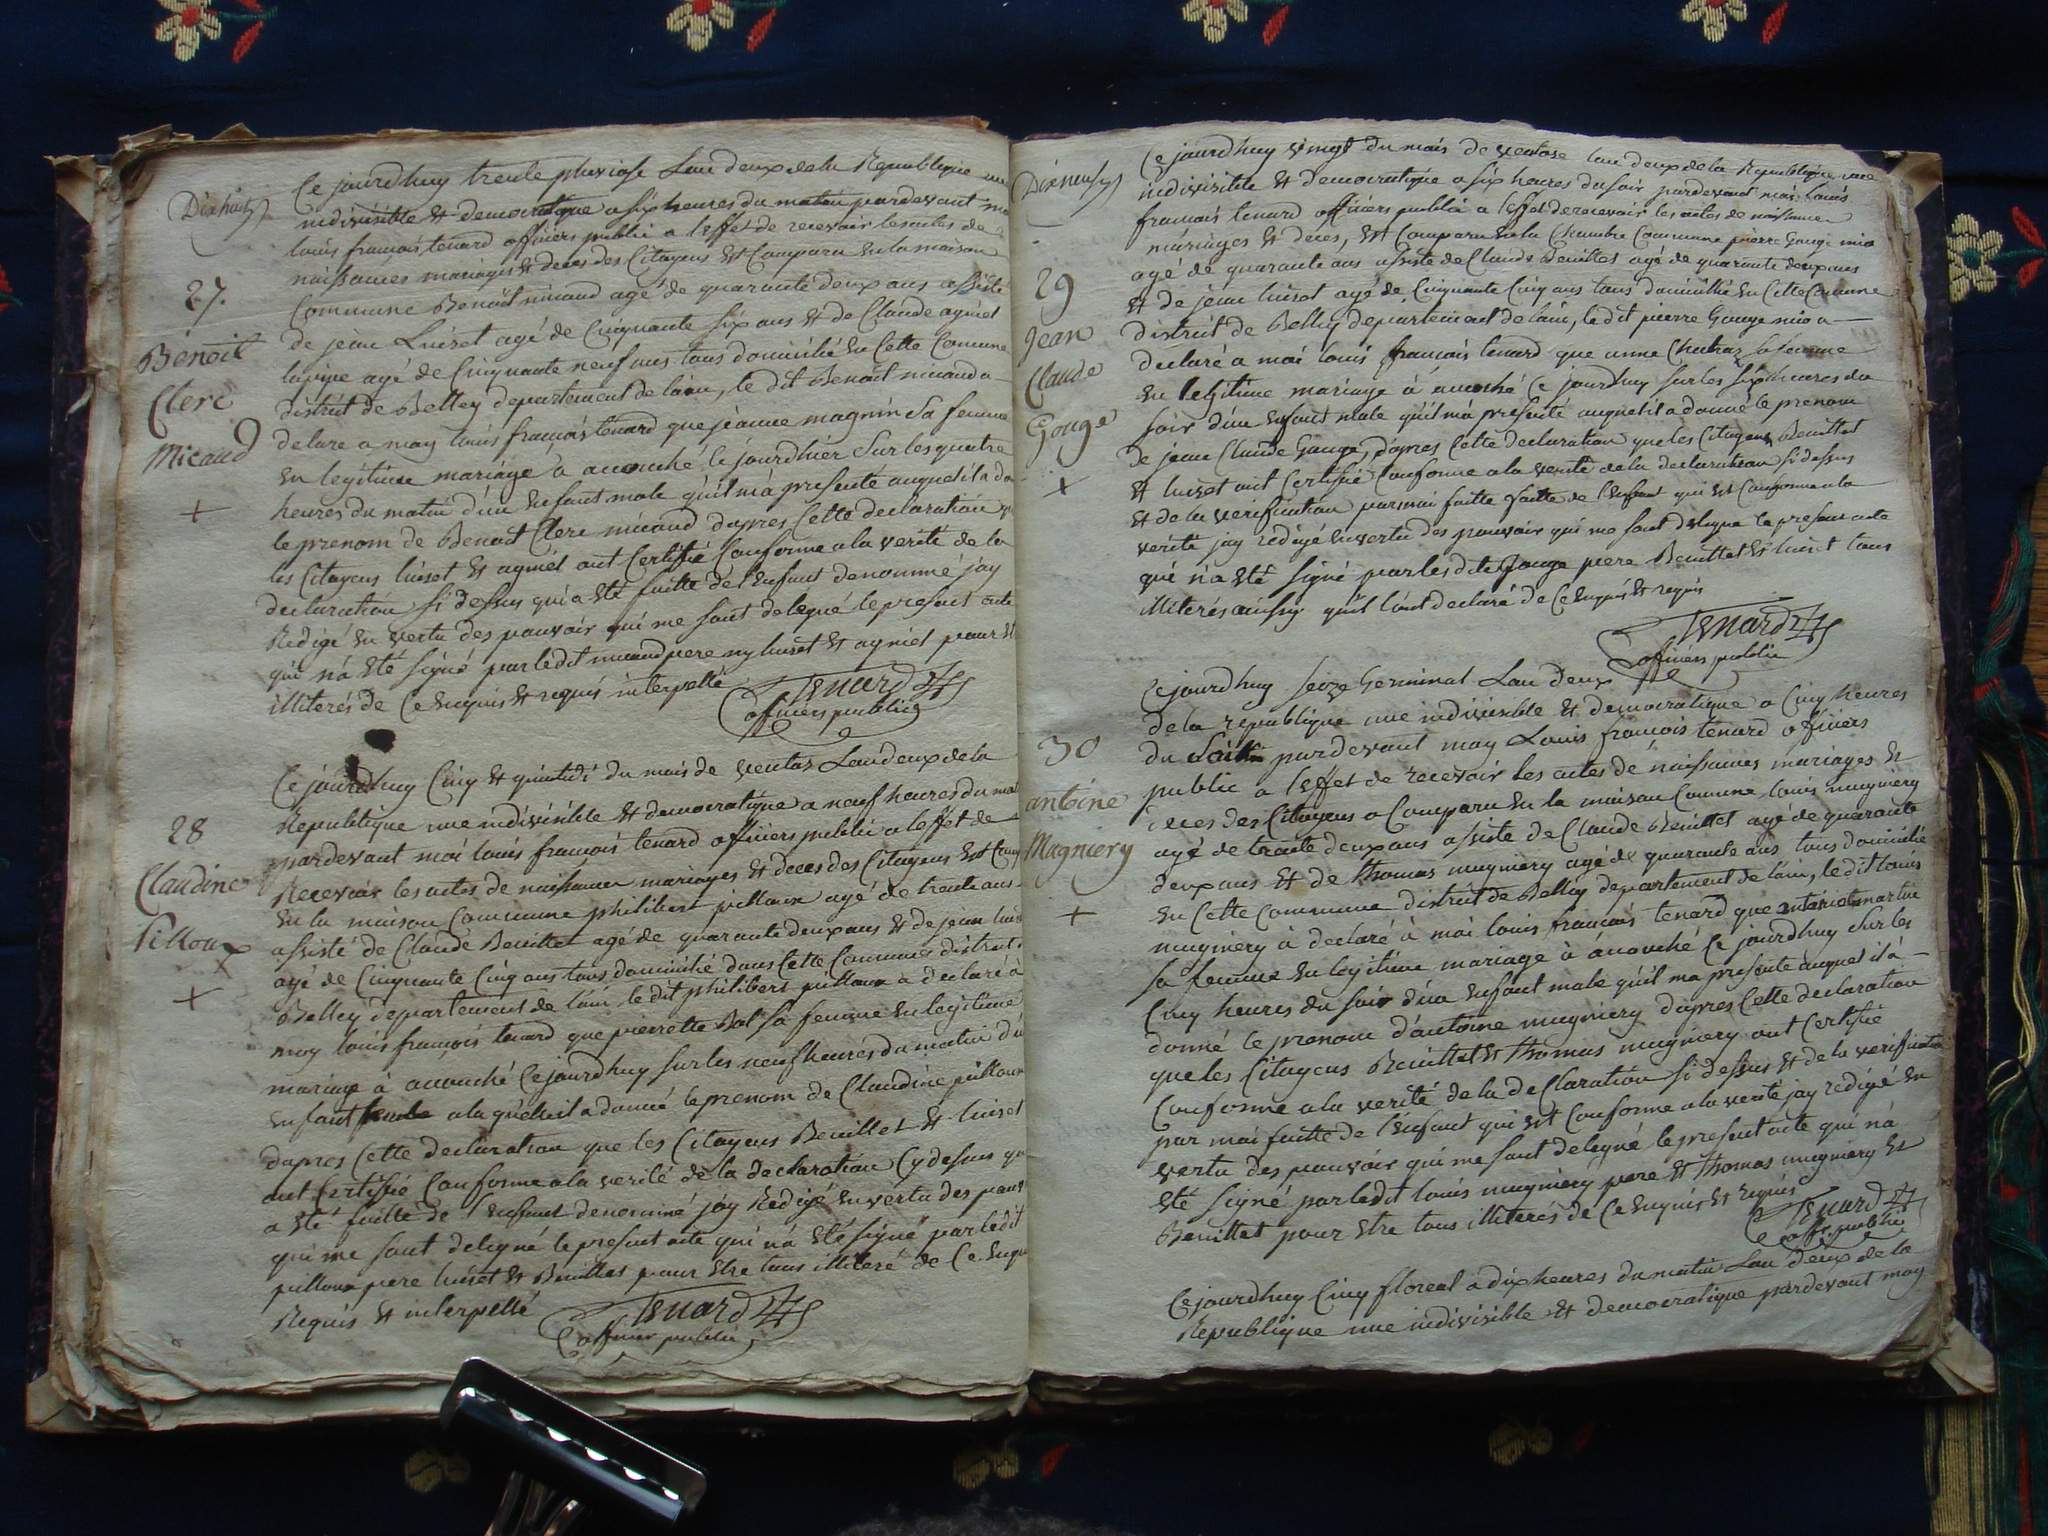 Dixhuit
Ce jourdhuy trente pluviose Lan deux de la Republique une
indivisible et democratique a six heures du matin pardevant moi
louis francois tenard officiers public a leffet de recevoir les actes de
naissances mariages et deces des Citoyens est Comparu en la maison
Commune Benoit micaud agé de quarante deux ans assisté
de jean Luiset agé de Cinquante six ans et de Claude agniel
agé de Cinquante neuf ans tous domicilié en Cette Comune
district de Belley departement de lain, le dit Benoit micaud a
declare a moy louis francois tenard que jeanne magnin sa femme
en legitime mariage a acouché le jourdhier sur les quatre
heures du matin d'un enfant male quil ma presenté auquel il a do
le prenom de Benoit Clerc micaud dapres Cette declaration
les Citoyens luiset et agniel ont Certifié Conforme a la verité de la
declaration si dessus qui a eté faitte de l'enfant denommé jay
Redigé en vertu des pouvoir qui me sont delegué le present acte
qui na eté signé par ledit micaud pere ny luiset et agniel pour et
illiterés de Ce enquis et requis interpellé
Tenard
officiers public
27.
Benoit
Clerc
Micaud
+
Ce jourdhuy Cinq et quintidi du mois de ventos Lan deux de la
Republique une indivisible et democratique a neuf heures du mat
pardevant moi louis francois tenard officiers public a leffet de
Recevoir les actes de naissances mariages et deces des Citoyens est Comp
en la maison Commune philibert pilloux agé de trente ans
assisté de Claude Beuillet agé de quarante deux ans et de jean luis
agé de Cinquante Cinq ans tous domicilié dans Cette Commune district
Belley departement de lain le dit philibert pilloux a declaré a
moy louis francois tenard que pierrette Bot sa femme en legitime
mariage à acouché Cejourdhuy sur les neuf heures du matin du
enfant a laquelle il a donné le prenom de Claudine pilloux
dapres Cette declaration que les Citoyens Beuillet et luiset
ont Certifié Conforme a la verité de la declaration Cy dessus qu
a eté faitte de l'enfant denommé jay Redigé en vertu des pouv
qui me sont delegué le present acte qui na eté signé par ledit
pilloux pere luiset et Beuillet pour etre tous illiteré de Ce enqu
Requis et interpellé
Tenard
officier public
28
Claudine
Pilloux
+
Dixneuf
Ce jourdhuy vingt du mois de ventose lan deux de la Republique une
indivisible et democratique a six heures du soir pardevant moi Louis
francois tenard officiers public a leffet de recevoir les actes de naissances
mariages et deces, est Comparu en la Chambre Commune pierre Gouge
agé de quarante ans assisté de Claude Beuillet agé de quarante deux ans
et de jean luiset agé de Cinquante Cinq ans tous domicillié en Cette Commune
district de Belley departement de lain, le dit pierre Gouge a
declaré a moi louis francois tenard que anne Chatraz sa femme
en legitime mariage à acouché Ce jourdhuy sur les six heures du
soir d'un enfant male quil ma presenté auquel il a donné le prenom
de jean Claude Gouge, dapres Cette declaration que les Citoyens Beuillet
et luiset ont Certifié Conforme a la verité de la declaration si dessus
et de la verification par moi faitte de l'enfant qui est Conforme a la
verité jay redigé en vertu des pouvoir qui me sont delegué le present acte
qui na eté signé par les dits Gouge pere Beuillet et luiset tous
illiterés ainsy quil lont declaré de Ce enquis et requis
Tenard
officiers public
29
Jean
Claude
Gouge
+
Cejourdhuy seize Germinal Lan deux
de la republique une indivisible et democratique a Cinq heures
du Soir pardevant moy Louis francois tenard officiers
public a leffet de recevoir les actes de naissances mariages et
deces des Citoyens a Comparu en la maison Comune louis mugniery
agé de trente deux ans assisté de Claude Beuillet agé de quarante
deux ans et de thomas mugniery agé de quarante ans, tous domicilié
en Cette Commune district de Belley departement de lain, le dit louis
mugniery à declaré à moi louis francois tenard que martin
sa femme en legitime mariage à acouché Ce jourdhuy sur les
Cinq heures du soir d'un enfant male quil ma presenté auquel il à
donné le prenom d'antoine mugniery dapres Cette declaration
que les Citoyens Beuillet et thomas mugniery ont Certifié
Conforme a la verité de la declaration si dessus et de la verification
par moi faitte de l'enfant qui est Conforme a la verité jay redigé en
vertu des pouvoir qui me sont delegué le present acte qui na
eté signé par ledit louis mugniery pere et thomas mugniery et
Beuillet pour etre tous illiterés de Ce enquis et requis
Tenard
off. public
30
antoine
Magniery
+
Cejourdhuy Cinq floreal a dix heures du matin Lan deux de la
Republique une indivisible et democratique pardevant moy